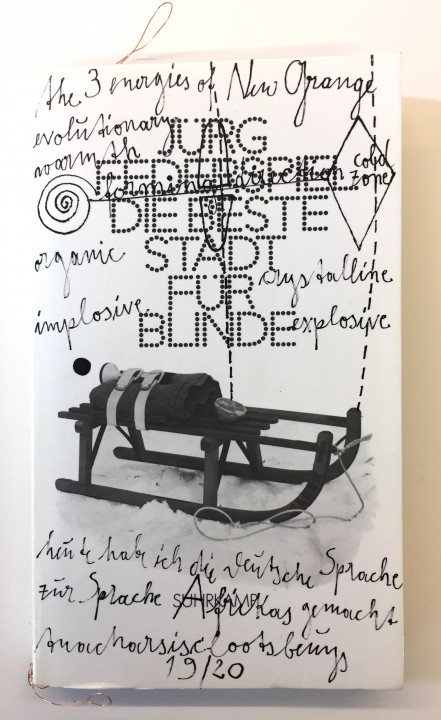 the 3 energies of New Orange
evolutionary
warmth
JÜRG
FEDERSPIEL
forming direction
cold
zone
DIE BESTE
STADT
FÜR
BLINDE
organic
crystalline
implosive
explosive
heute habe ich die deutsche Sprache
zur Sprache Afrikas gemacht
SUHRKAMP
19/20